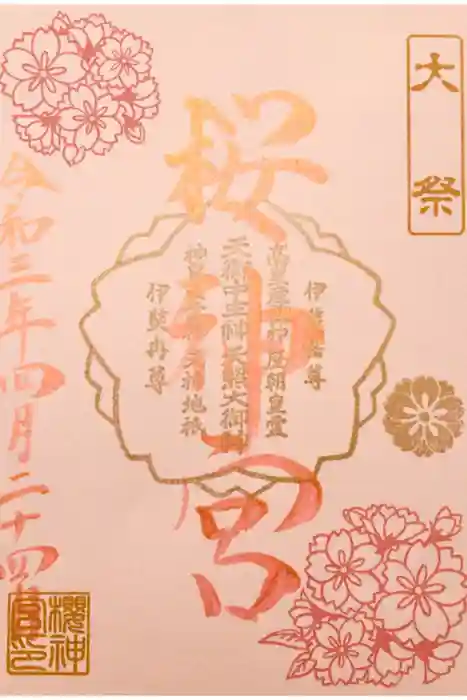 大祭
桜神宮
伊弉諾尊
高皇産霊神歴朝皇霊
天御中主神天照大御神
神皇産霊神天神地祇
伊弉冉尊
令和三年四月二十四日
櫻神
宮印